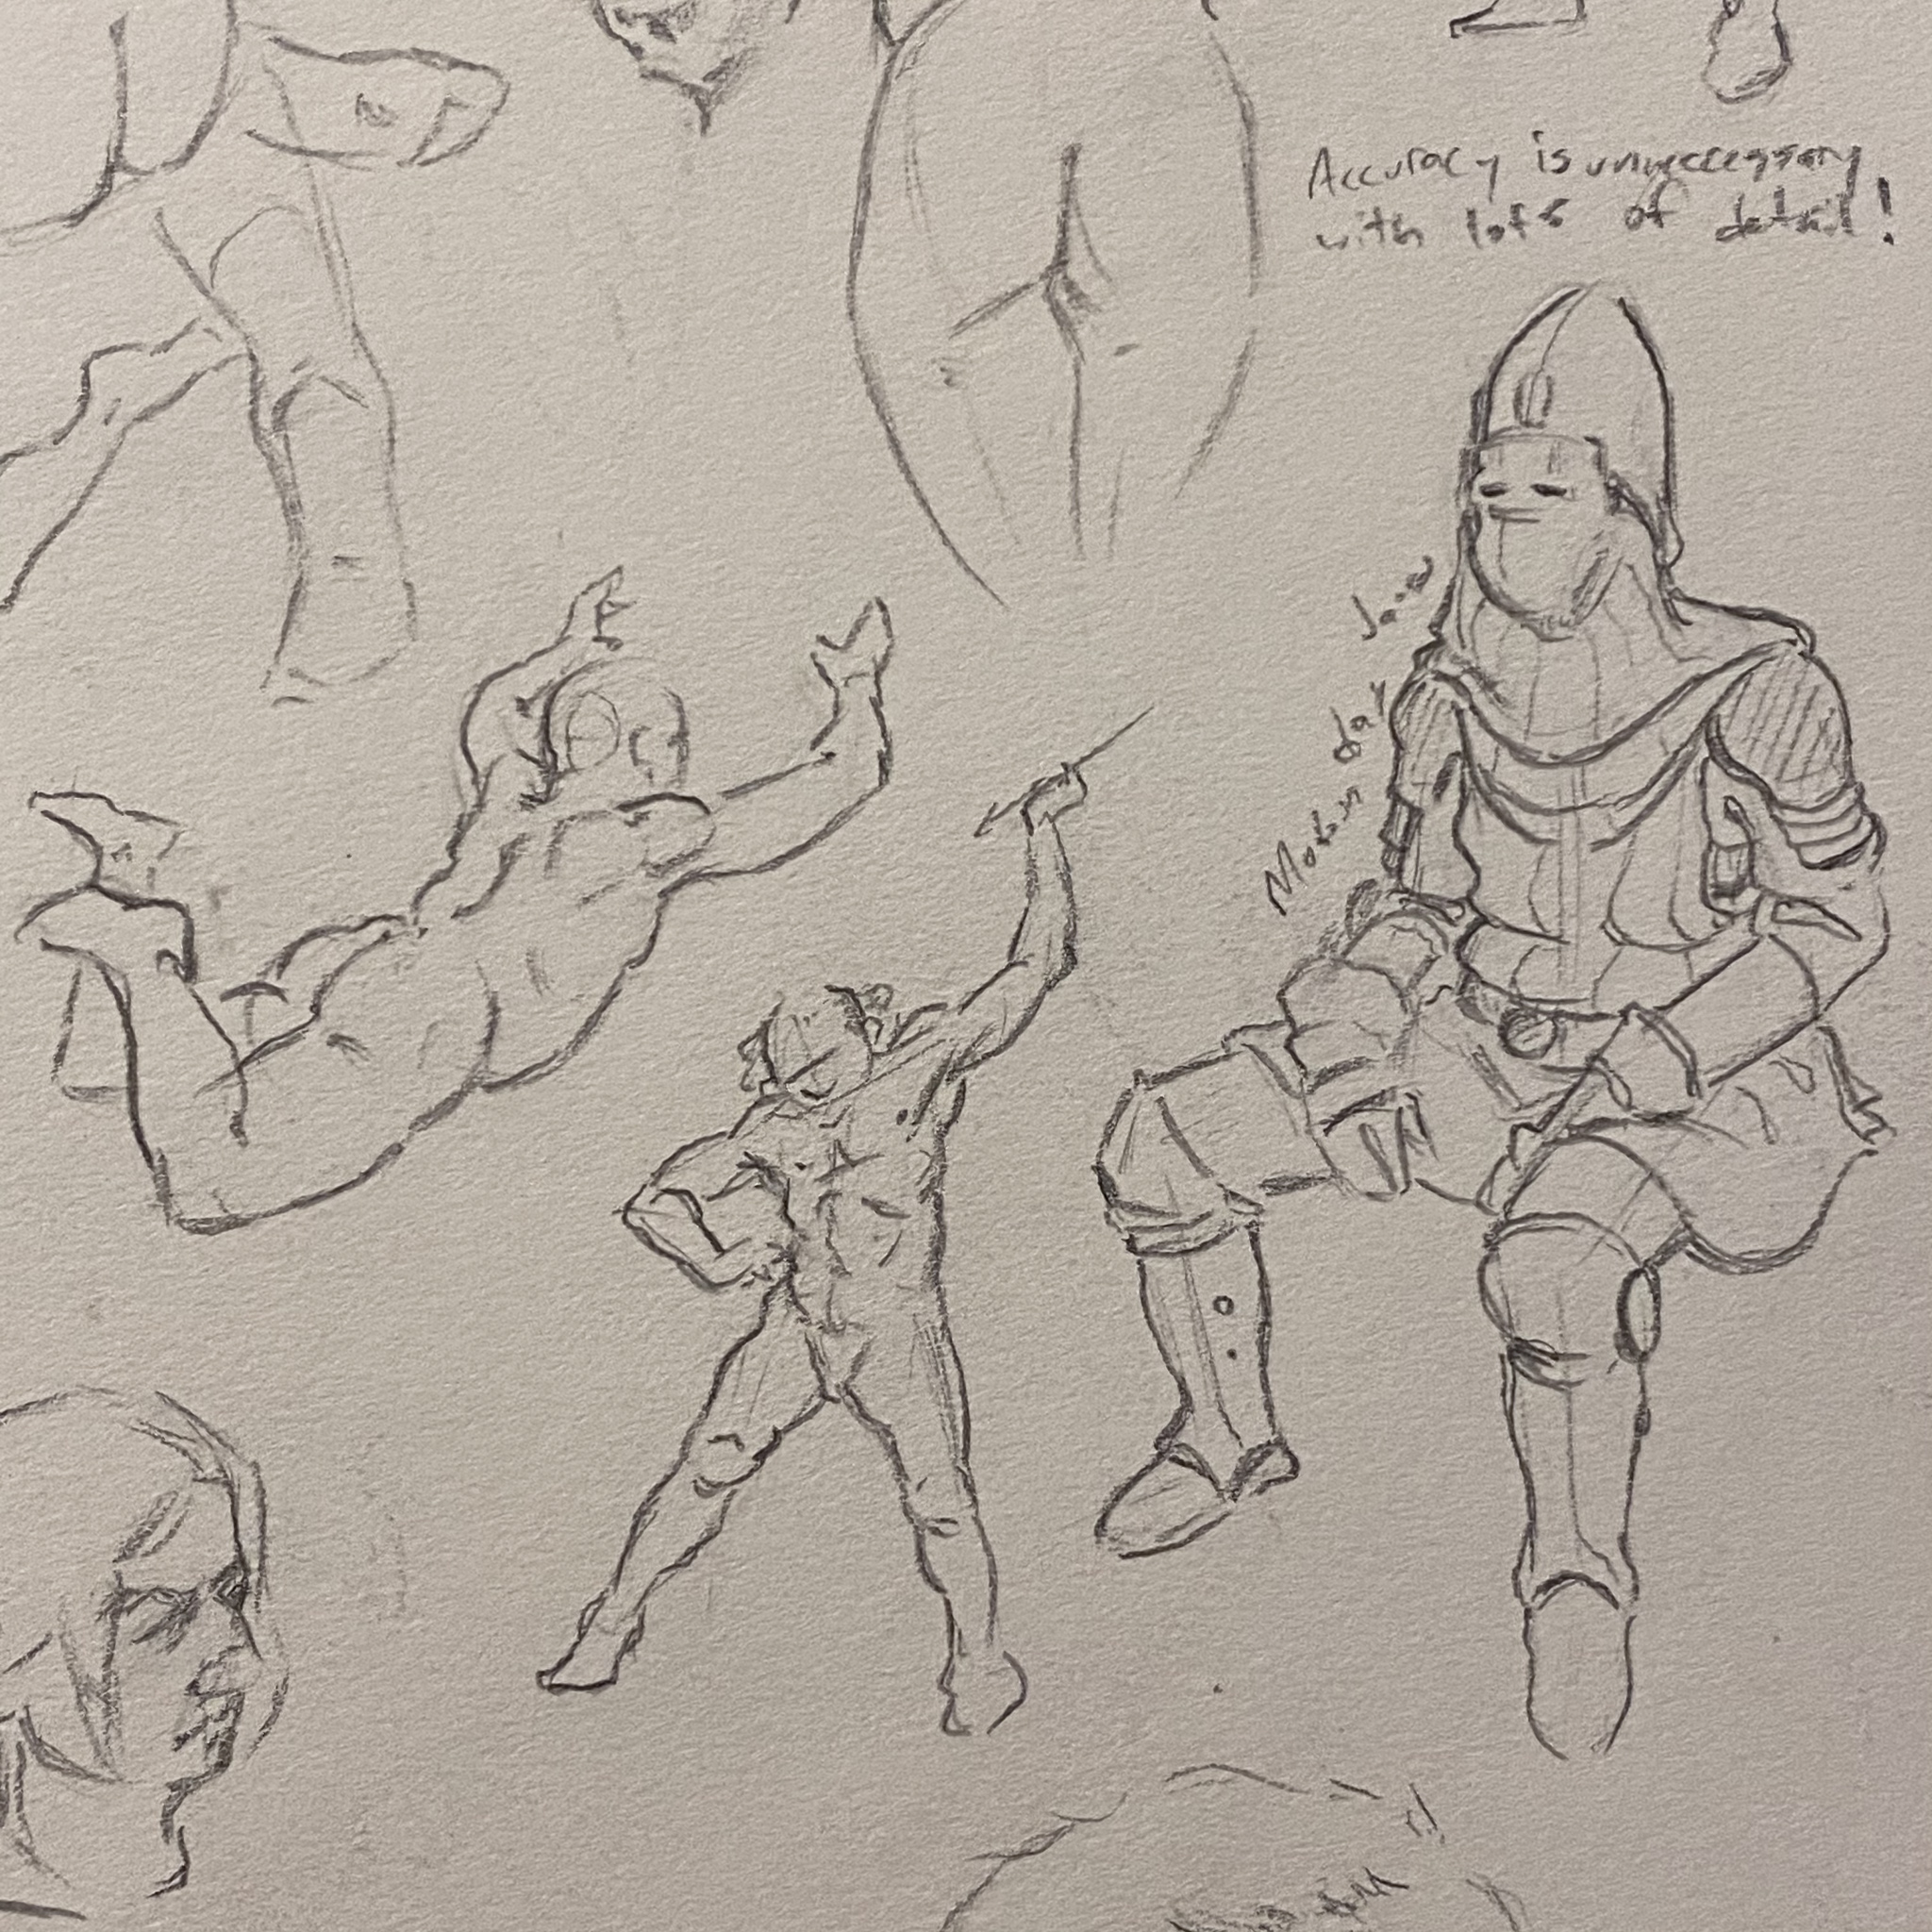 Accuracy is unneccessary
with lots of detail!
Modern day